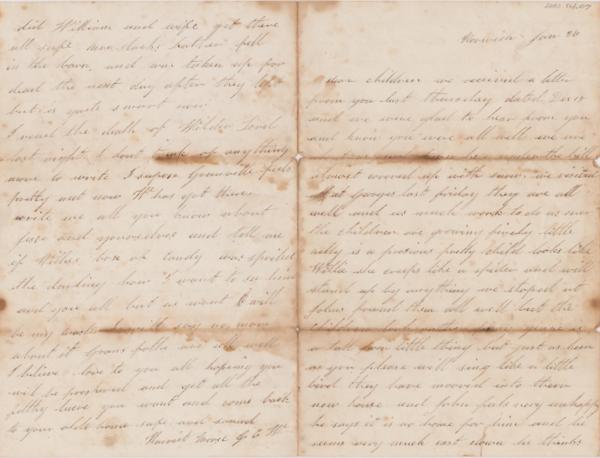 Norwich Jan 26
dear children we received a letter
from you last thursday dated Dec
and we were glad to hear from you
and know you were all well we are
under the hill
almost moved up with snow we visited
at Georges last friday they are all
well and as much work to do as ever
the children are growing finely little
is a pretty child looks like
Willie she creeps like a spider and will
stand up by anything we stoped at
Johns found them all well but the
is
a tall little thing but just as keen
as you please will sing like a little
bird they have mooved into their
new house and John feels very unhappy
he says it is no home for him and he
seems very much cast down he thinks
did William and wife get there
all safe father fell
in the barn and was taken up for
dead the next day after they left
but is quite smart now
I read the death of Wilder
last night I dont think of anything
more to write I supose Granville feels
pretty now Wm has got there
write me all you know about
and yourselves and tell me
if Willies box of candy was spoiled
the darling how I want to see him
and you all but as want will
be my I will say no more
about it Grans folks are all well
I believe love to you all hoping you
will be prospered and get all the
filthy lucre you want and come back
to your old home safe and sound
Harriet